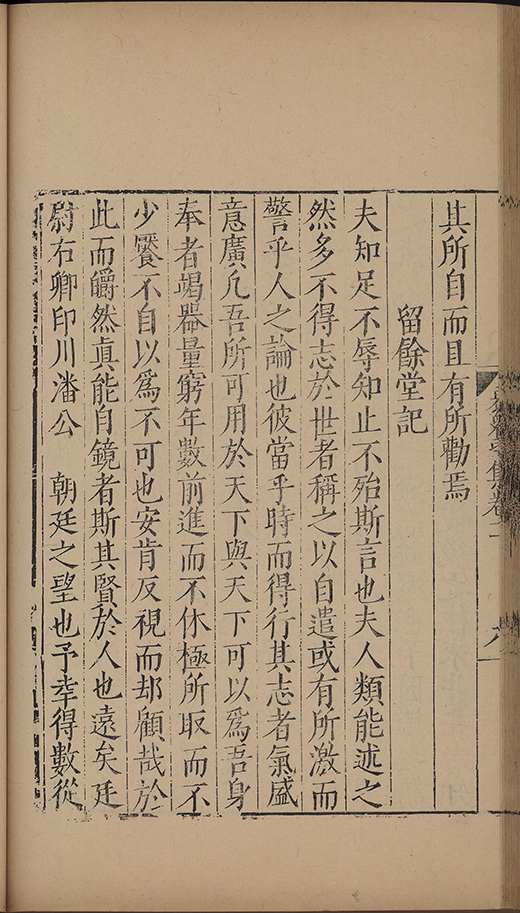 其所自而且有所勸焉
留餘堂記
夫知足不辱知止不殆斯言也夫人類能述之
然多不得志於世者稱之以自遣或有所激而
警乎人之論也彼當乎時而得行其志者氣盛
意廣凡吾所可用於天下與天下可以爲吾身
奉者竭器量窮年數前進而不休極所取而不
少饜不自以爲不可也安肯反視而却顧哉於
此而皭然真能自鏡者斯其賢於人也遠矣廷
尉右卿印川潘公 朝廷之望也予幸得數從